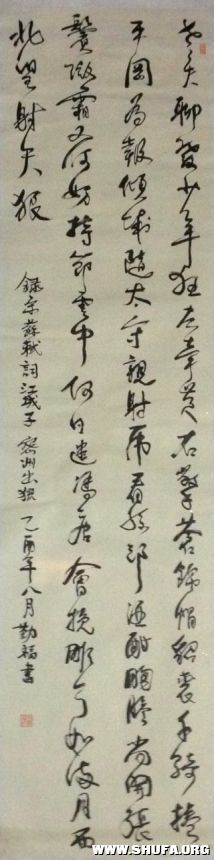 老夫聊發少年狂左牽黃右擎蒼錦帽貂裘千騎捲
平岡為報傾城隨太守親射虎看孫郎酒酣胸膽尚開張
鬢微霜又何妨持節雲中何日遣馮唐會挽雕弓如滿月西
北望射天狼
錄宋蘇軾詞江城子 密州出獵 乙酉年八月勤福書
www.SHUFA.ORG